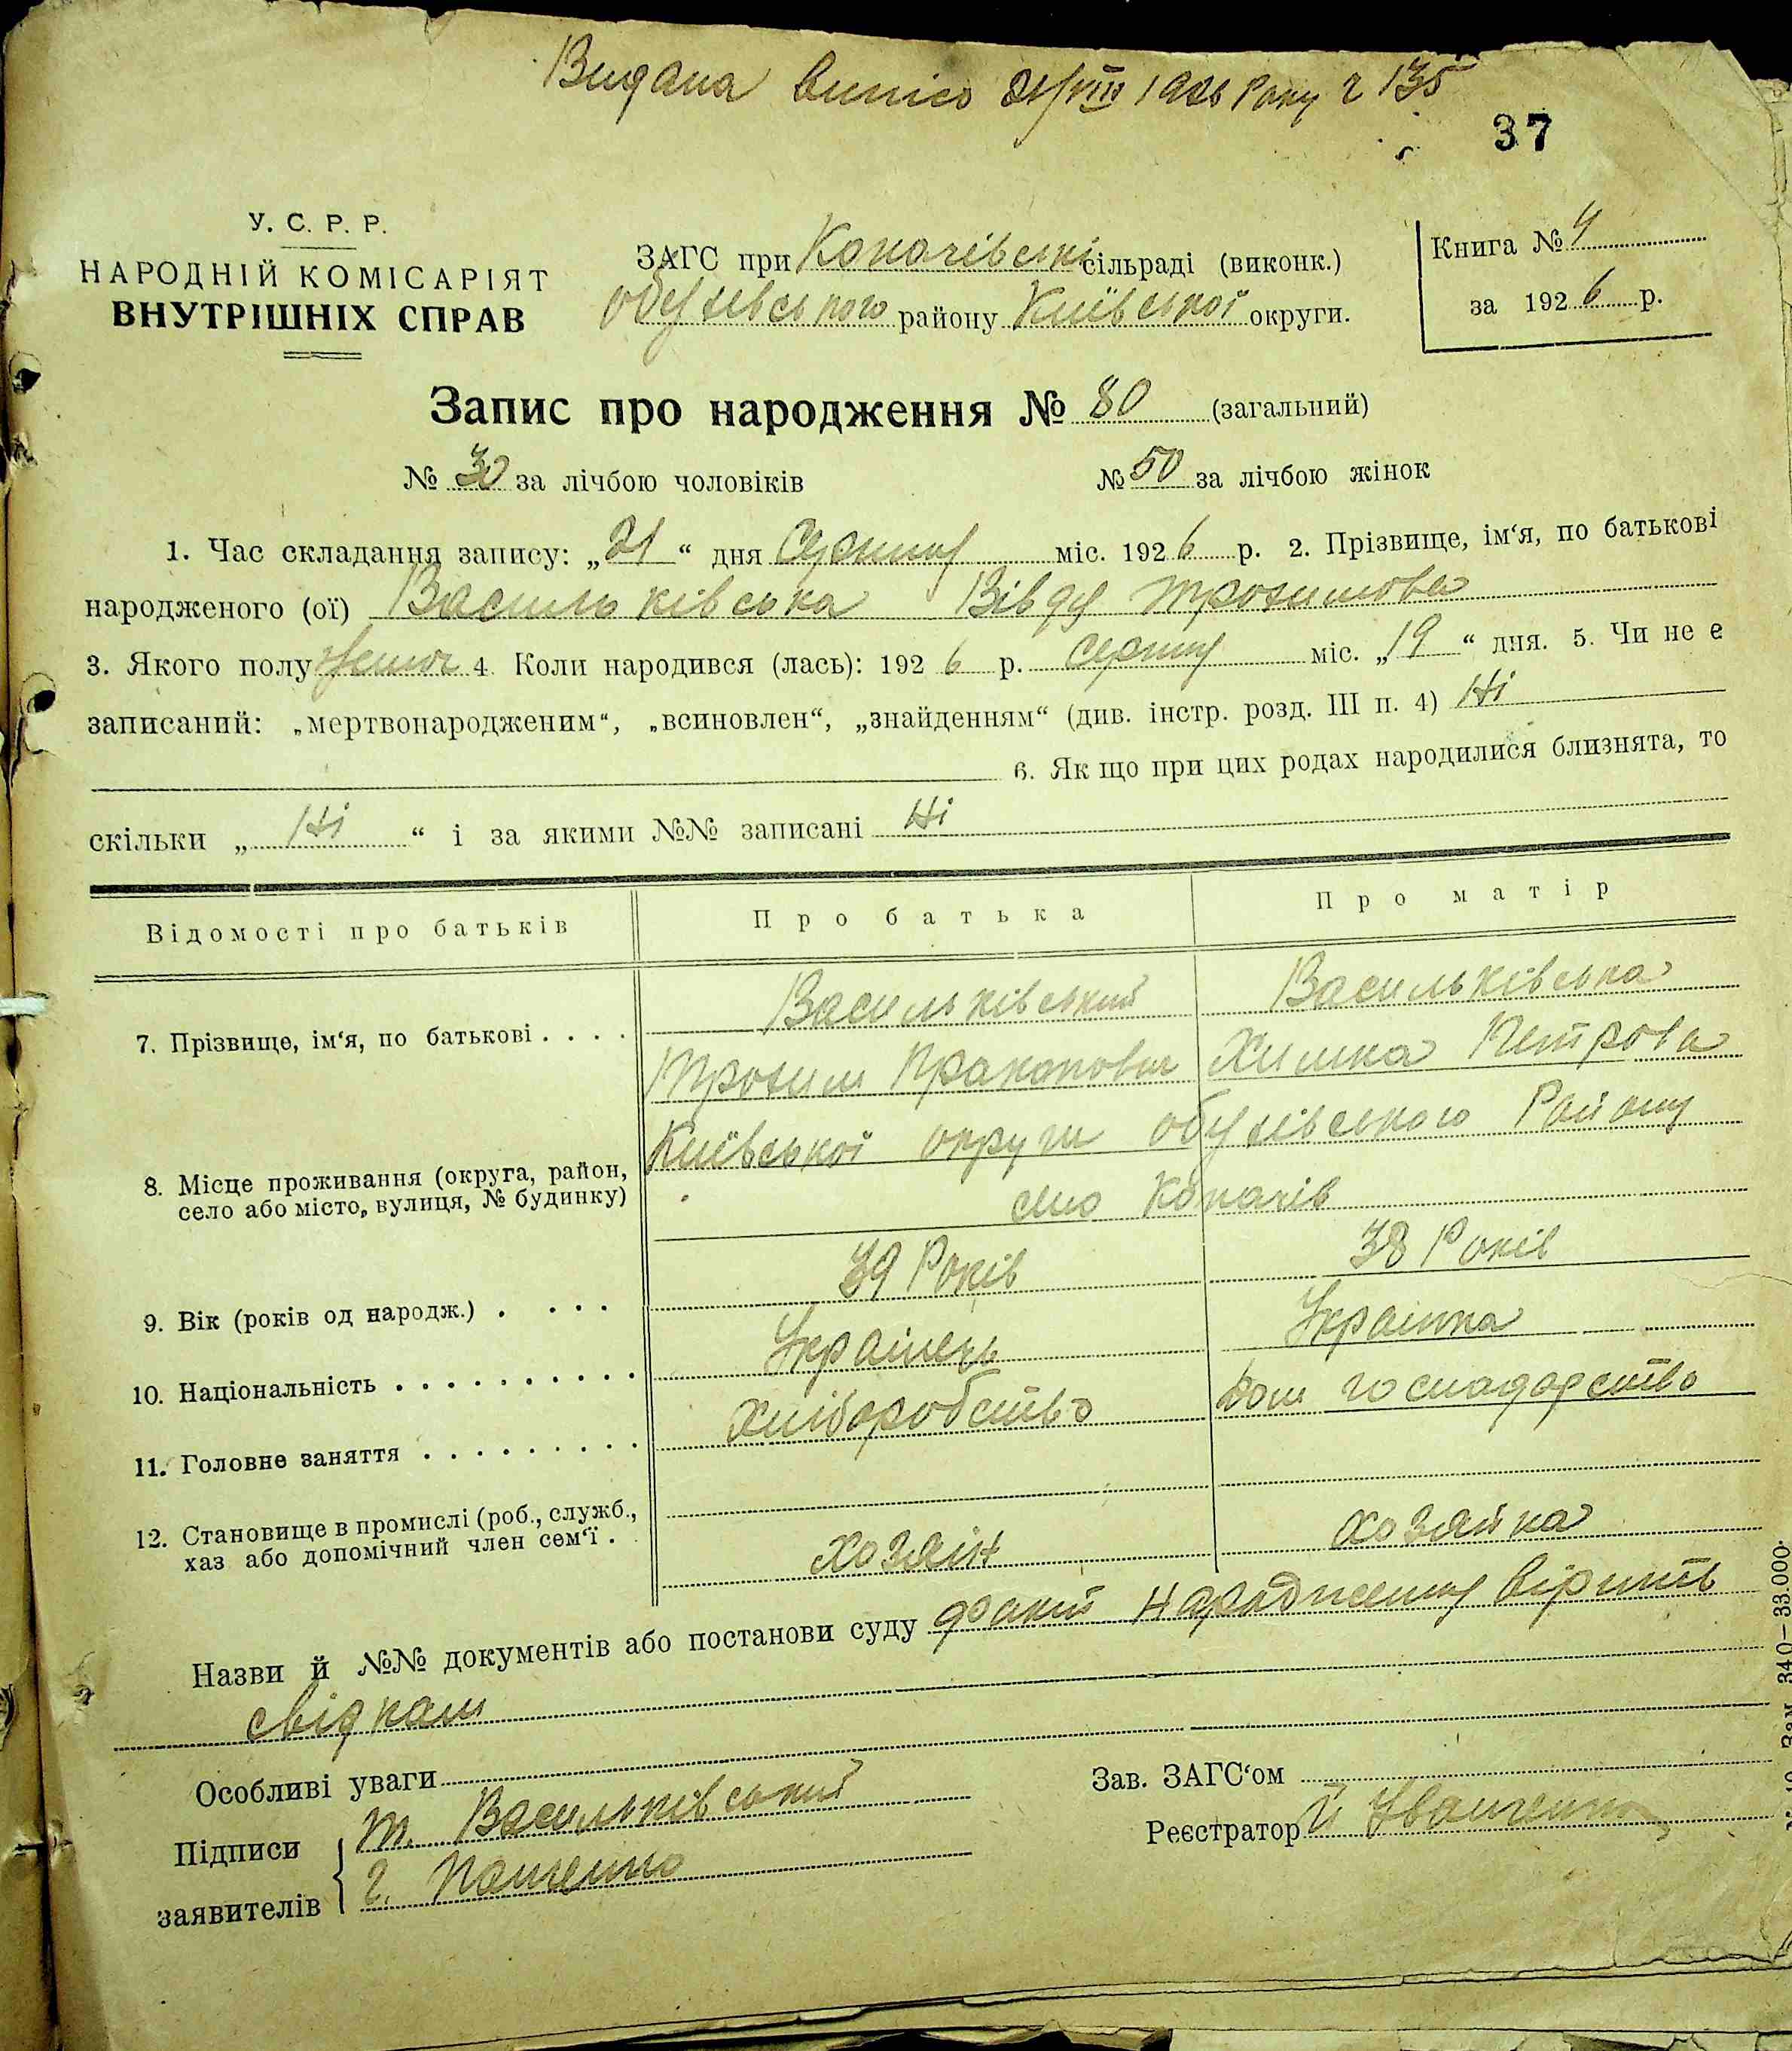 Видана випись 21/VIII 1926 Року ч 135
37
У. С. Р. Р.
НАРОДНІЙ КОМІСАРІЯТ
ВНУТРІШНІХ СПРАВ
ЗАГС при Копачівські сільраді (виконк.)
обухівського району Київської округи.
Книга № 4
за 1926 р.
Запис про народження № 80 (загальний)
№ 30 за лічбою чоловіків № 50 за лічбою жінок
1. Час складання запису: „21“ дня Серпня міс. 1926 р. 2. Прізвище, ім‘я, по батькові
народженого (ої) Васильківська Вівдя трохимова
3. Якого полу жіноч 4. Коли народився (лась): 1926 р. серпня міс. „19“ дня. 5. Чи не є
записаний: „мертвонародженим“, „всиновлен“, „знайденням“ (див. інстр. розд. III п. 4) Ні
6. Як що при цих родах народилися близнята, то
скільки „Ні“ і за якими №№ записані Ні
Відомості про батьків Про батька Про матір
7. Прізвище, ім‘я, по батькові . . . . Васильківський Васильківська
Трохим Пракопович Химка Петрова
8. Місце проживання (округа, район, Київської округи обухівського Району
село або місто, вулиця, № будинку) село Копачів
9. Вік (років од народж.) . . . . 39 Років 38 Років
10. Національність . . . . . . . . . . Українець Українка
11. Головне заняття . . . . . . . . . Хліборобство Дом господарство
12. Становище в промислі (роб., служб.,
хаз або допомічний член сем‘ї . хозяін хозяйка
Назви й №№ документів або постанови суду факт народження вірить
свідкам
Особливі уваги
Підписи
заявителів
Т. Васильківський
Г. Панченко
Зав. ЗАГС‘ом
Реєстратор
Зам. 340—33.000.